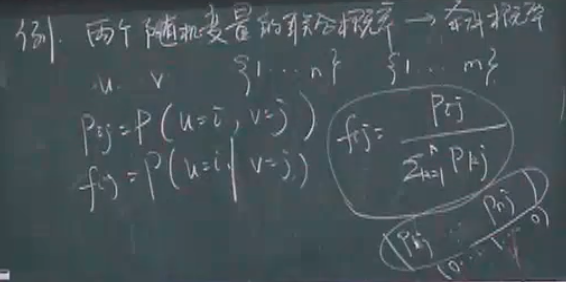 例. 两个随机变量的联合概率 → 条件概率
u v {1 ... n} {1 ... m}
Pij = P(u=i, v=j)
fij = P(u=i | v=j)
fij = Pij / ∑k=1^n Pkj
(P1j ... Pnj)
(0 ... 1 ... 0)